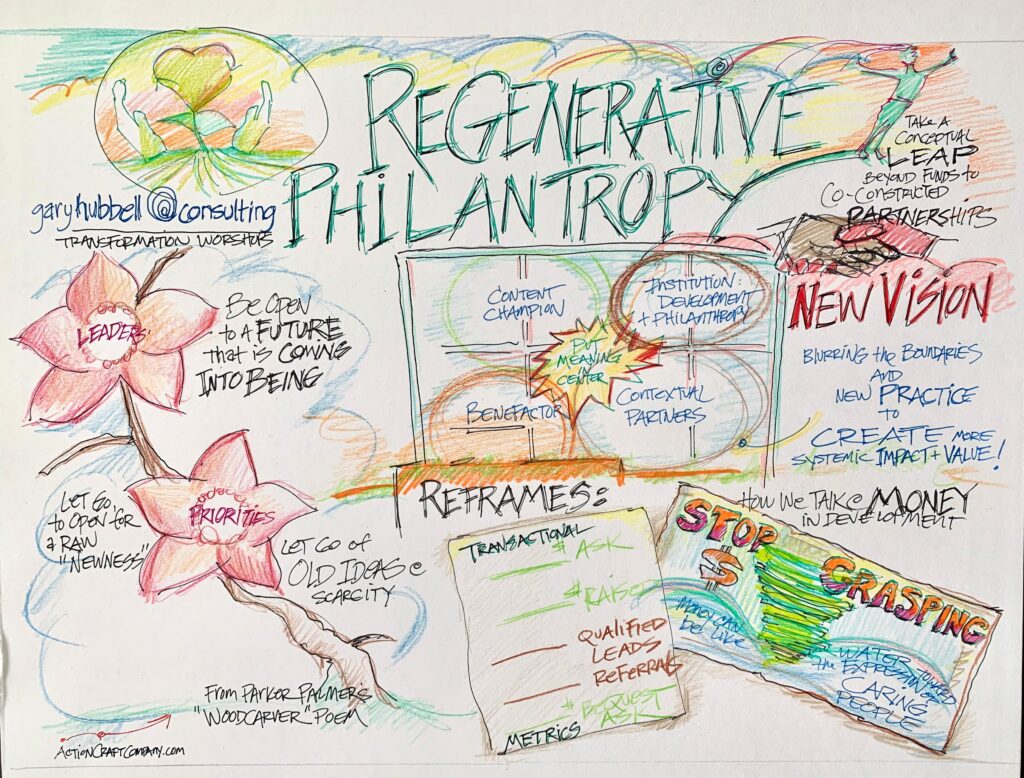 REGENERATIVE
PHILANTROPY
garyhubbell@consulting
TRANSFORMATION WORSHOPS
TAKE A
CONCEPTUAL
LEAP
BEYOND FUNDS to
CO-CONSTRICTED
PARTNERSHIPS
LEADERS
BE OPEN
to A FUTURE
that is COMING
INTO BEING
CONTENT
CHAMPION
INSTITUTION:
DEVELOPMENT
+ PHILANTHROPY
PUT
MEANING
IN
CENTER
BENEFACTOR
CONTEXTUAL
PARTNERS
NEW VISION
BLURRING the BOUNDARIES
AND
NEW PRACTICE
to
CREATE MORE
SYSTEMIC IMPACT + VALUE!
LET GO
to OPEN for
a RAW
"NEWNESS"
PRIORITIES
LET GO of
OLD IDEAS @
SCARCITY
From PARKER PALMERS
"WOODCARVER" POEM
ACTIONCRAFTCOMPANY.COM
REFRAMES:
TRANSACTIONAL
$ ASK
$ RAISED
QUALIFIED
LEADS
REFERRALS
$ BEQUEST
ASK
METRICS
HOW WE TALK @ MONEY
IN DEVELOPMENT
STOP
$
GRASPING
MONEY CAN
be LIKE
WATER TOWARD
the EXPRESSION of
CARING
PEOPLE